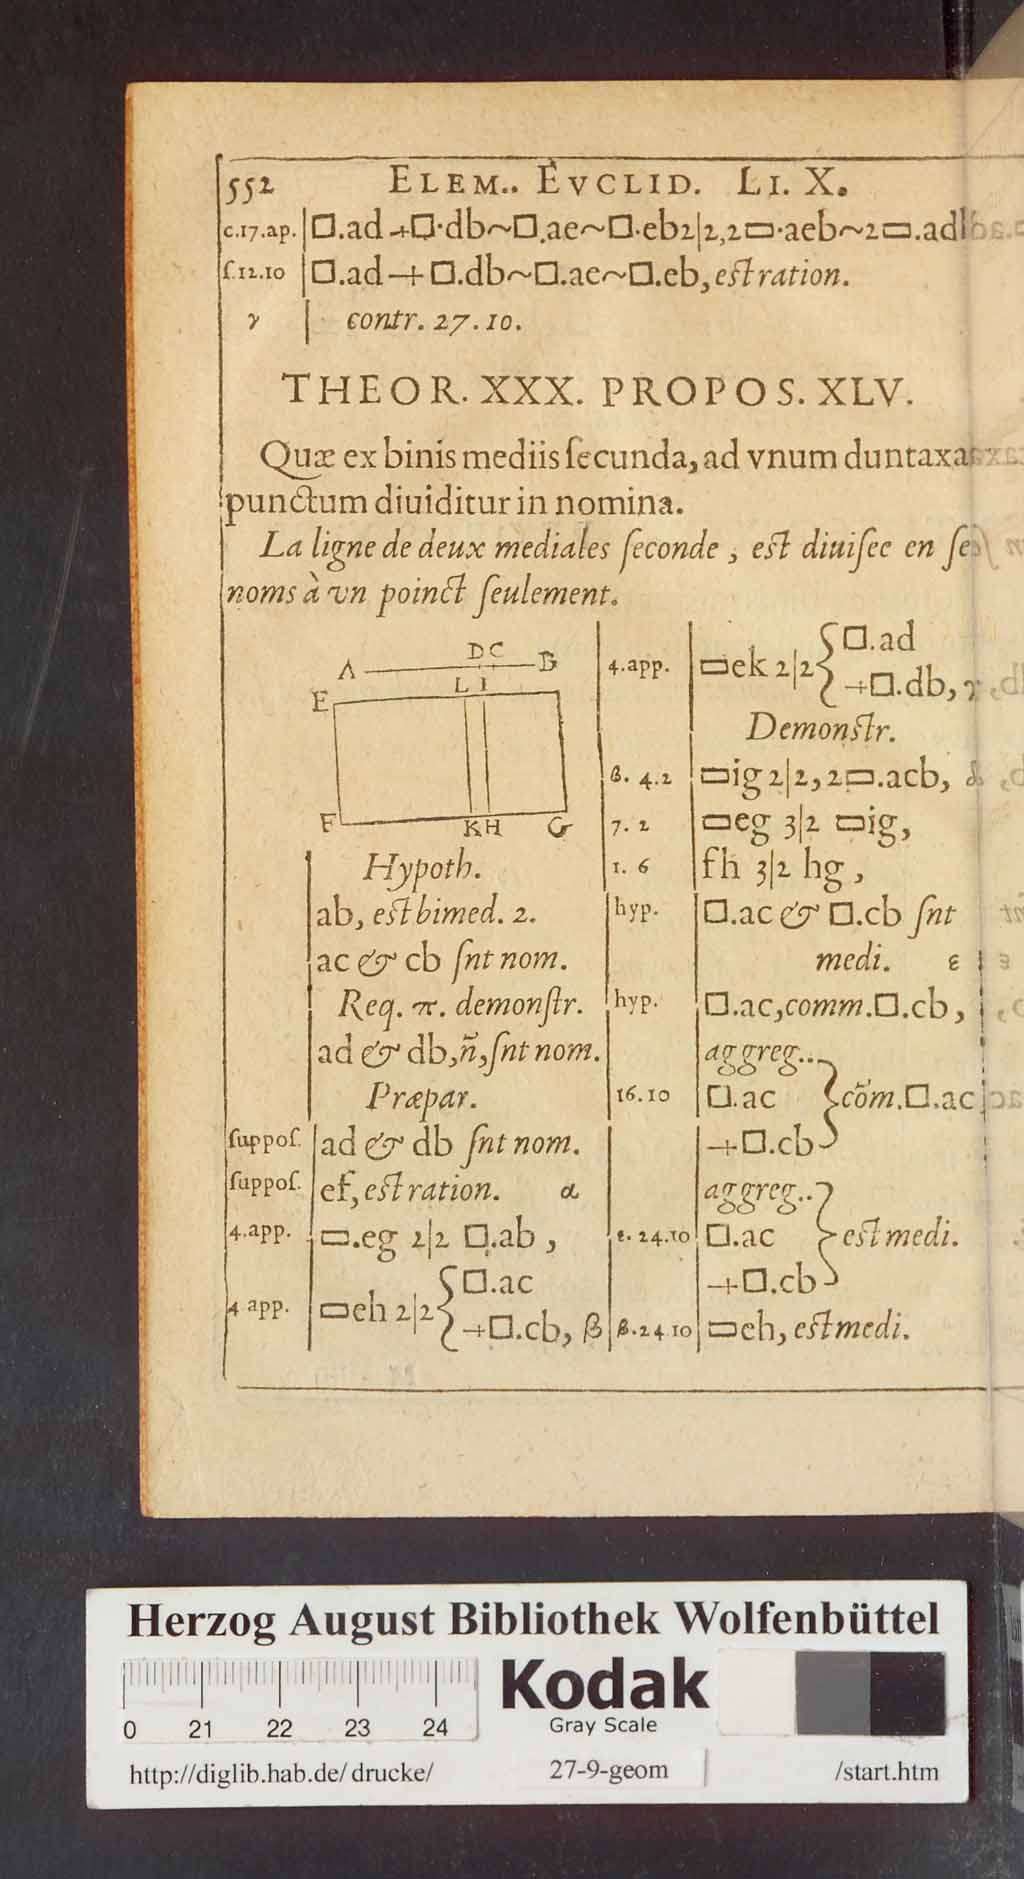 552 ELEM.. EVCLID. LI. X.
c.17.ap. □.ad + □.db ~ □.ae ~ □.eb 2|2, 2▭.aeb ~ 2▭.adb
ſ.12.10 □.ad + □.db ~ □.ae ~ □.eb, eſt ration.
γ contr. 27.10.
THEOR. XXX. PROPOS. XLV.
Quæ ex binis mediis ſecunda, ad vnum duntaxat
punctum diuiditur in nomina.
La ligne de deux mediales ſeconde, eſt diuiſee en ſes
noms à vn poinct ſeulement.
A D C B
E L I
F K H G
Hypoth.
ab, eſt bimed. 2.
ac & cb ſnt nom.
Req. π. demonſtr.
ad & db, ñ, ſnt nom.
Præpar.
ſuppoſ. ad & db ſnt nom.
ſuppoſ. ef, eſt ration. α
4.app. ▭.eg 2|2 □.ab,
4 app. ▭eh 2|2 { □.ac
+□.cb, β
4.app. ▭ek 2|2 { □.ad
+□.db, γ
Demonſtr.
β. 4.2 ▭ig 2|2, 2▭.acb, δ
7. 2 ▭eg 3|2 ▭ig,
1. 6 fh 3|2 hg,
hyp. □.ac & □.cb ſnt
medi. ε
hyp. □.ac, comm. □.cb,
aggreg..
16.10 □.ac } cõm. □.ac
+□.cb
aggreg..
ε. 24.10 □.ac } eſt medi.
+□.cb
β.24.10 ▭eh, eſt medi.
Herzog August Bibliothek Wolfenbüttel
0 21 22 23 24
Kodak
Gray Scale
http://diglib.hab.de/drucke/ 27-9-geom /start.htm